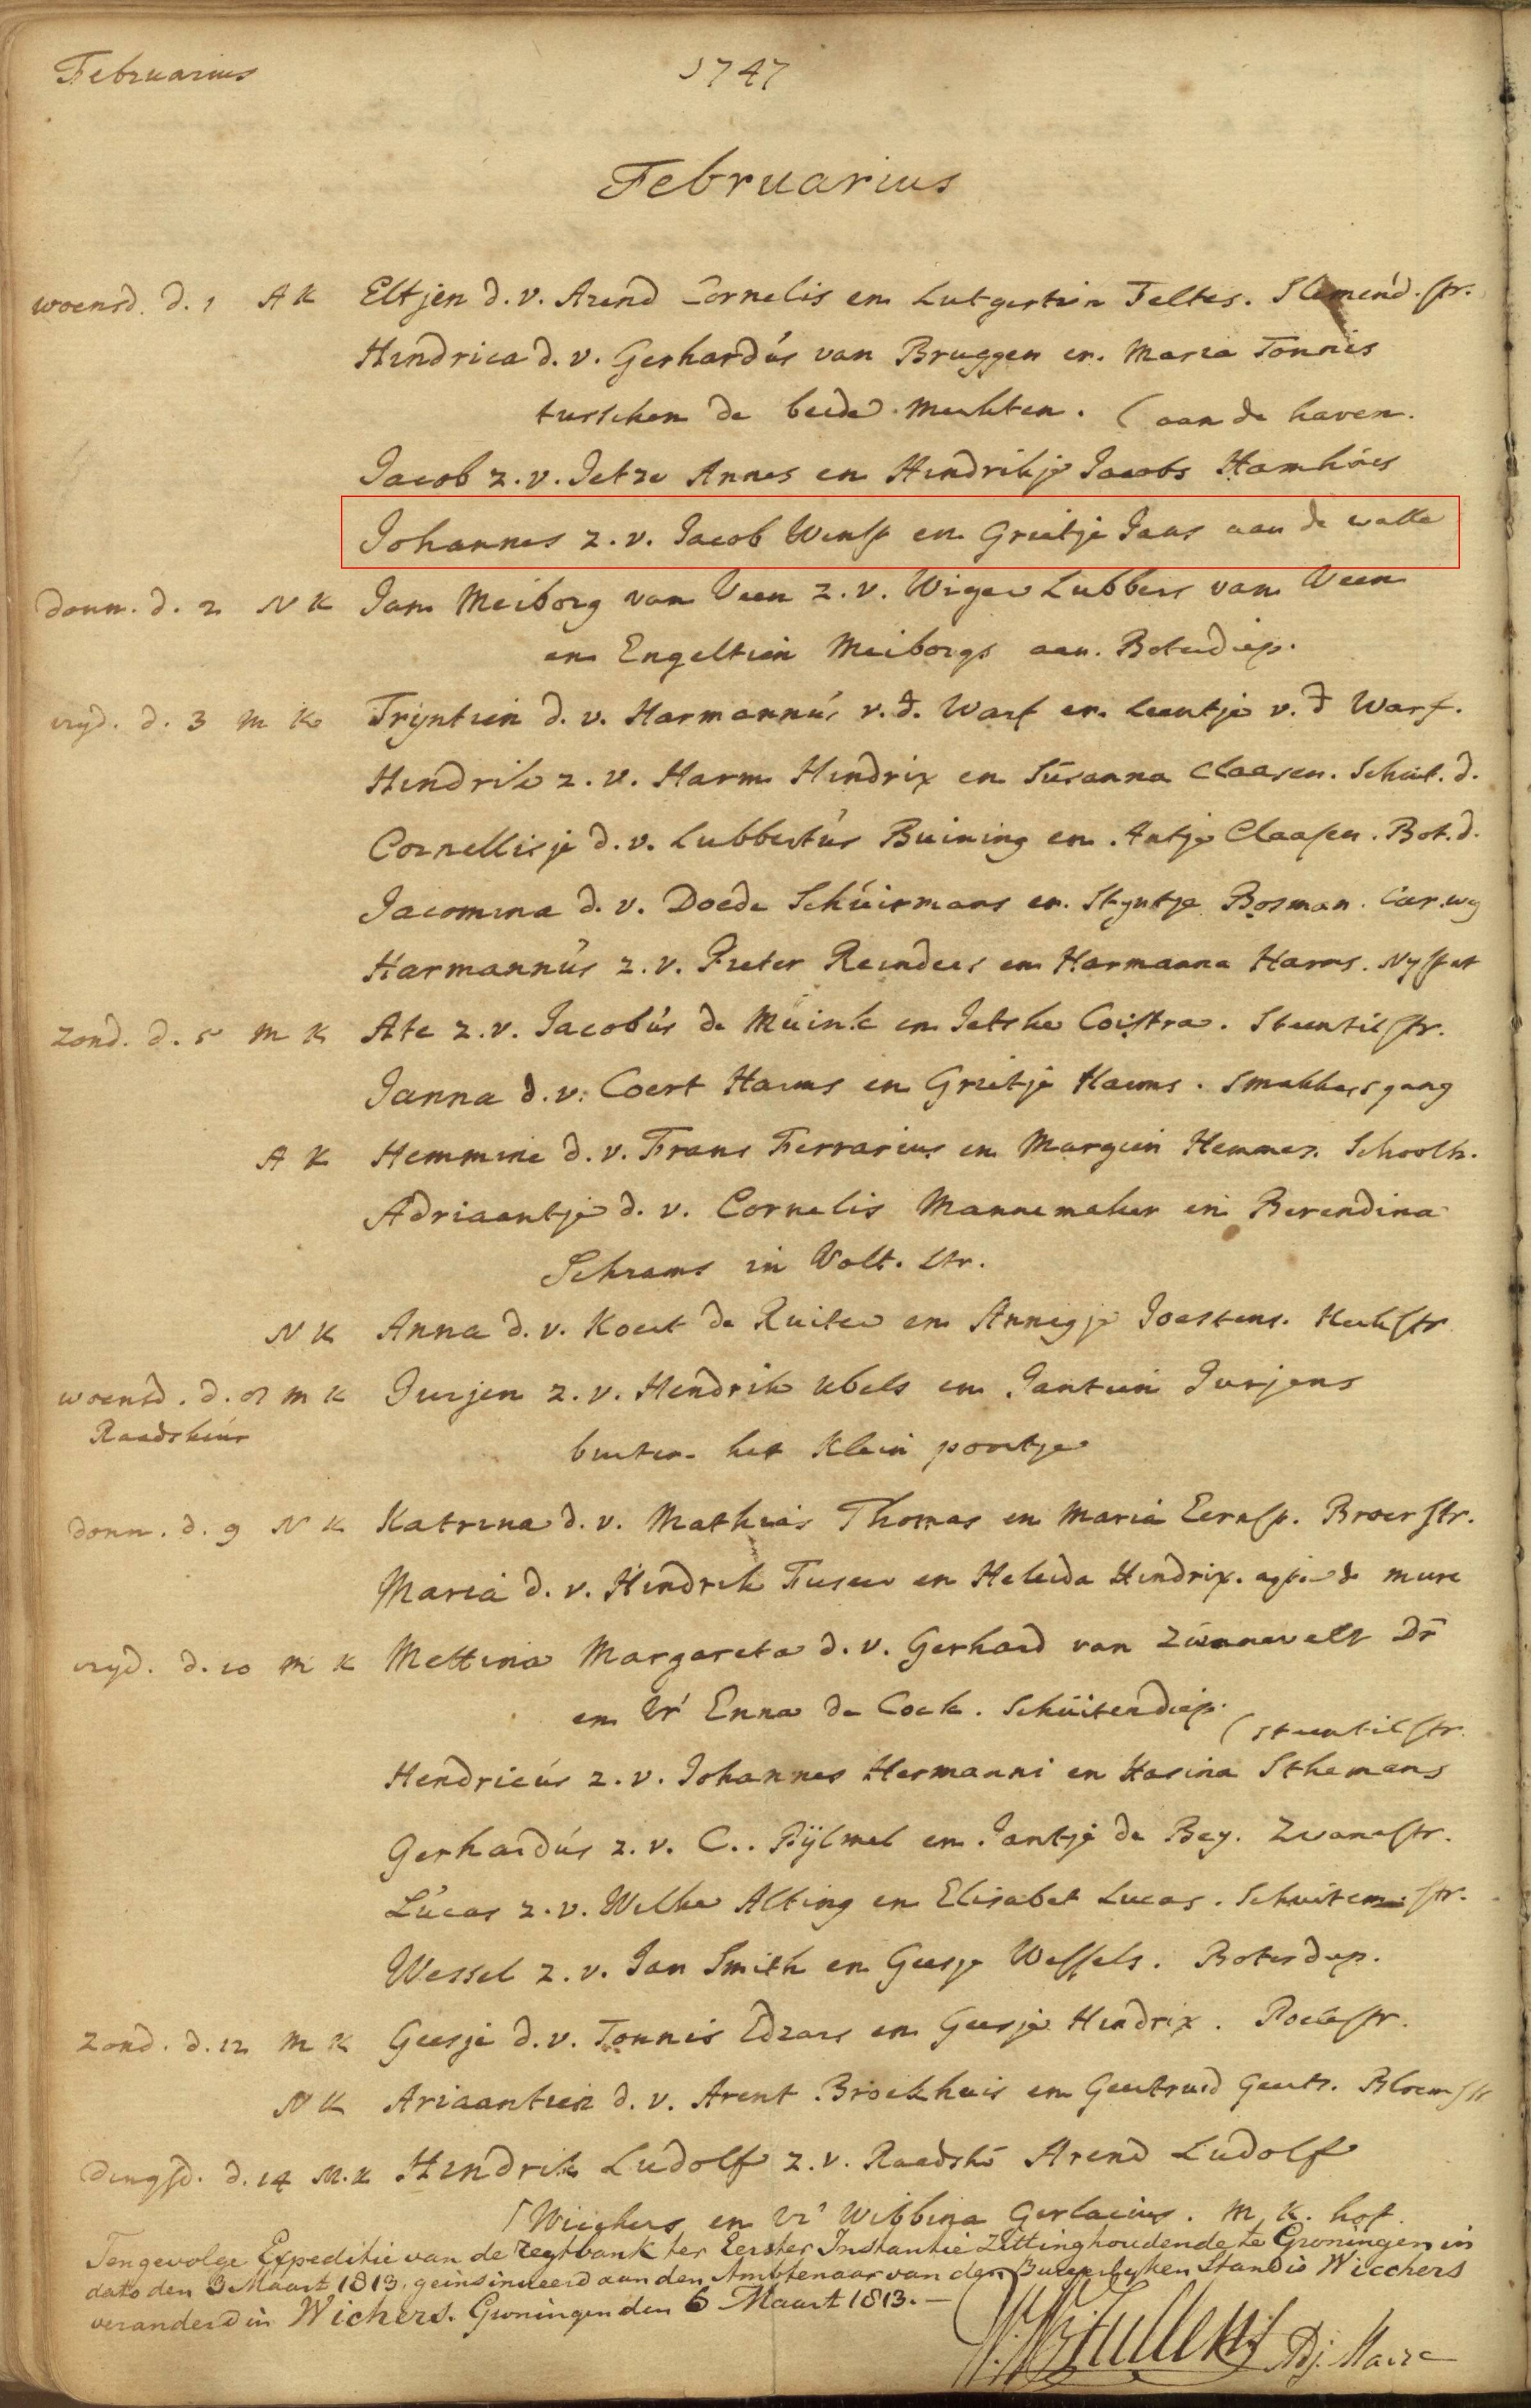 Februarius 1747
Februarius
woensd. d. 1 A K Eltjen d. v. Arend Cornelis en Lutgertien Feltes. str.
Hindrica d. v. Gerhardús van Bruggen en Maria Tonnis
tusschen de beide Merkten. (aan de haven.
Jacob z. v. Jetze Annes en Hindrikje Jacobs Hamhúes
Johannes z. v. Jacob en Grietje Jans aan de walle
donn. d. 2 N K Jan Meiborg van Veen z. v. Wiger Lubbers van Veen
en Engeltien Meiborgs aen. Boterdiep.
vryd. d. 3 M K Trijntien d. v. Harmannús v. d. Warf en Leentje v. d Warf.
Hindrik z. v. Harm Hindrix en Súsanna Claasen. Schuit. d.
Cornellisje d. v. Lubbertús Buining en Antje Claassen. Bot. d.
Jacomina d. v. Doede Schúirmans en Styntje Bosman.
Harmannús z. v. Pieter Reinders en Harmanna Harms. Nystat
Zond. d. 5 M K Ate z. v. Jacobús de Múink en Jetske Coistra. Steentilstr.
Janna d. v. Coert Harms en Grietje Harms. Smakkersgang
A K Hemmine d. v. Frans Ferrarius en Margien Hemmes. Schoolh.
Adriaantje d. v. Cornelis Mannemaker en Berendina
Schrams in Volt. str.
N K Anna d. v. Koert de Ruiter en Annegje Joestens. Herkstr
woensd. d. 8 M K Jurjen z. v. Hendrik Ubels en Jantien Jurjens
Raadskeúr
buiten het Klein poortje
donn. d. 9 N K Katrina d. v. Mathias Thomas en Maria Eernst. Broerstr.
Maria d. v. Hindrik en Heleida Hindrix. agter de mure
vryd. d. 10 M K Mettina Margareta d. v. Gerhard van Zwanevelt Dr
en Vr Enna de Cock. Schúitendiep.
(Steentilstr.
Hendricús z. v. Johannes Hermanni en Hasina Sthemans
Gerhardús z. v. C.. Pijlmel en Jantje de Bey. Zwanestr.
Lúcas z. v. Welke Alting en Elisabet Lucas. Schuitem. str.
Wessel z. v. Jan Smith en Geesje Wessels. Boterdiep.
Zond. d. 12 M K Geesje d. v. Tonnis Edzars en Geesje Hindrix. Poelestr.
N K Ariaantien d. v. Arent Broekhuis en Geertruid Geerts. Bloemstr
dingsd. d. 14 M. K Hindrik Ludolf z. v. Raadshr Arend Ludolf
Wicchers en Vr Wibbina Gerlacius. M. K. hof.
Tengevolge Expeditie van de regtbank ter Eerster Instantie Zittinghoudende te Groningen in
dato den 3 Maart 1813, geinsinueerd aan den Ambtenaar van den Burgerlyken Stand is Wicchers
veranderd in Wichers. Groningen den 6 Maart 1813.—
Adj. Maire